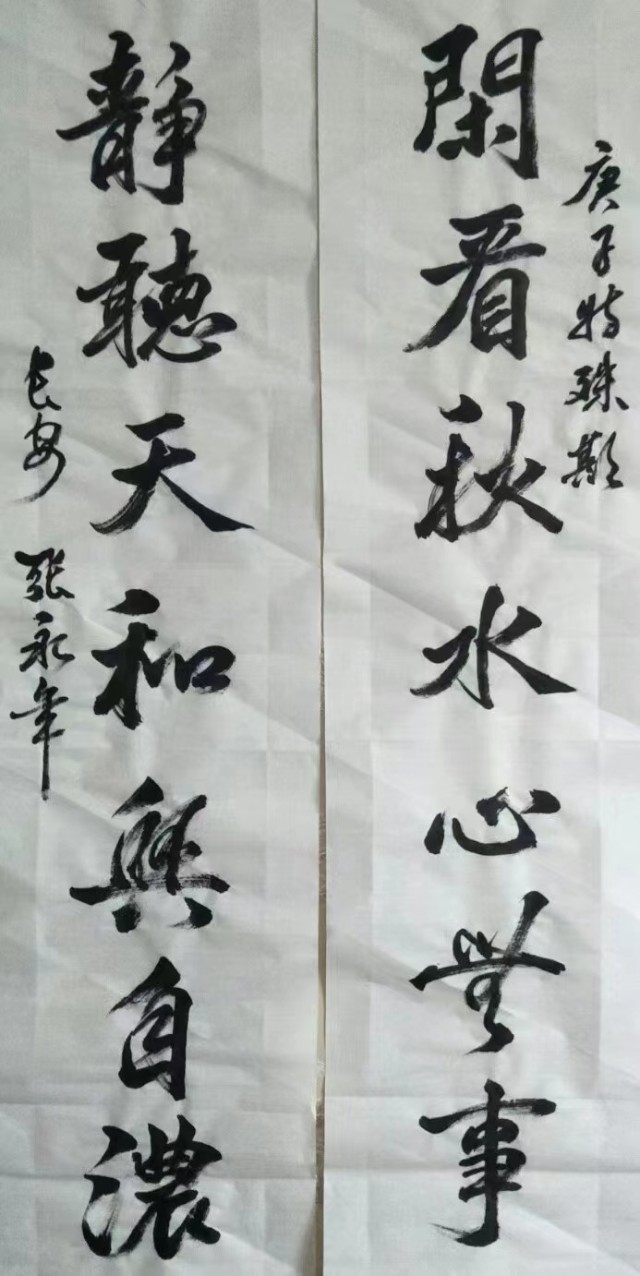 庚子特殊期
閑看秋水心無事
靜聽天和興自濃
長安 張永年